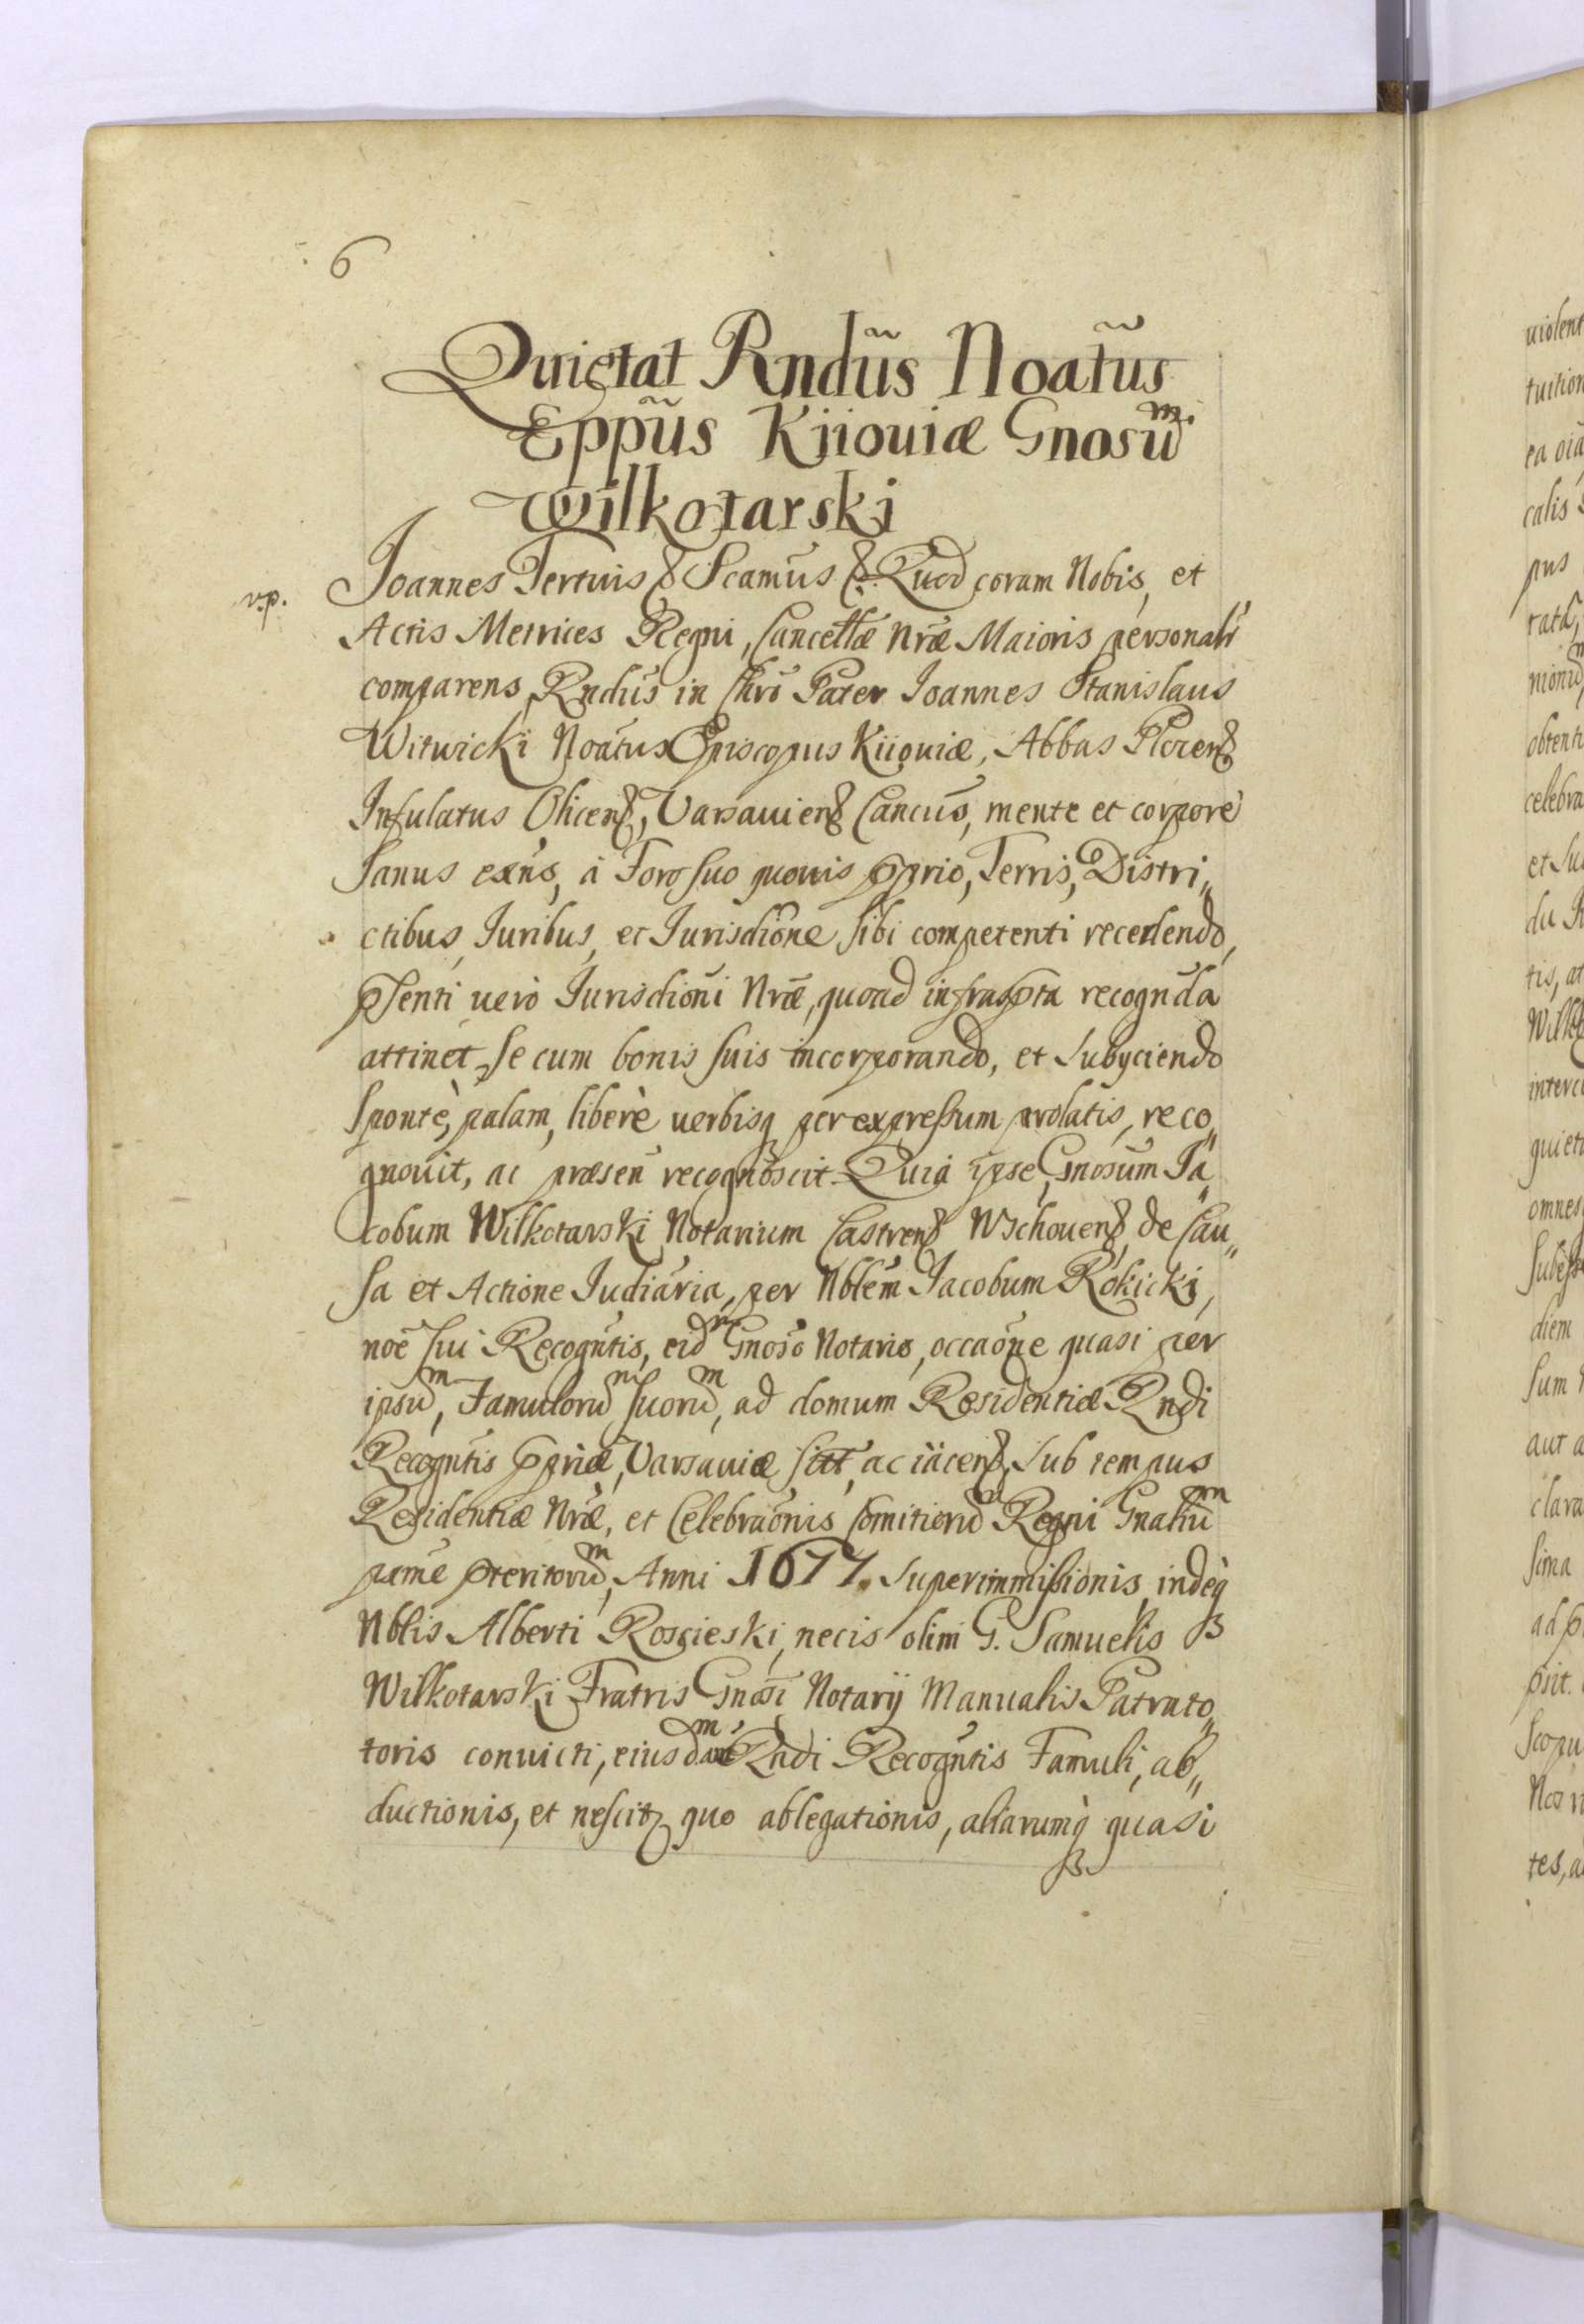 6
Quietat Rndūs Noatūs
Eppūs Kijoviæ Gnosūm
Wilkotarski
v.p.
Joannes Tertius & Scamūs &. Quod coram Nobis, et
Actis Metrices Regni, Cancellæ Nr̄æ Maioris personalr̄
comparens, Rndūs in Chrō Pater Joannes Stanislaus
Witwicki Noātus Episcopus Kiioviæ, Abbas Plocens,
Infulatus Olicens, Varsaviens Cancūs, mente et corpore
sanus exn̄s, à Foro suo quovis pprio, Terris, Distri„
ctibus, Juribus, et Jurisdione sibi competenti recedendo,
psenti vero Jurisdioni Nr̄æ, quoad infraspta recogn̄da
attinet, se cum bonis suis incorporando, et subyciendo
sponte, palam, liberè verbisq per expressum prolatis, reco„
gnovit, ac præsen̄ recognoscit. Quia ipse Gnosum Ja„
cobum Wilkotarski Notarium Castrens Wschovens de Cau„
sa et Actione Judiāria, per Nblēm Jacobum Rokicki,
noē sui Recogn̄tis, eidm Gnosō Notario, occaōne quasi per
ipsūm, Famulorūm suorūm, ad domum Residentiæ Rndi
Recogn̄tis ppriæ, Varsaviæ sit, ac iacens, sub tempus
Residentiæ Nr̄æ, et Celebraōnis Comitiorūm Regni Gnaliūm
pxmē pteritorūm, Anni 1677. superimmissionis, indeq̀
Nblis Alberti Roscieski, necis olim G. Samuelis
Wilkotarski Fratris Gnosi Notarÿ Manualis Patrato„
toris convicti, eiusdm Rndi Recogn̄tis Famuli, ab„
ductionis, et nescitz quo ablegationis, aliarumq̀ quasi